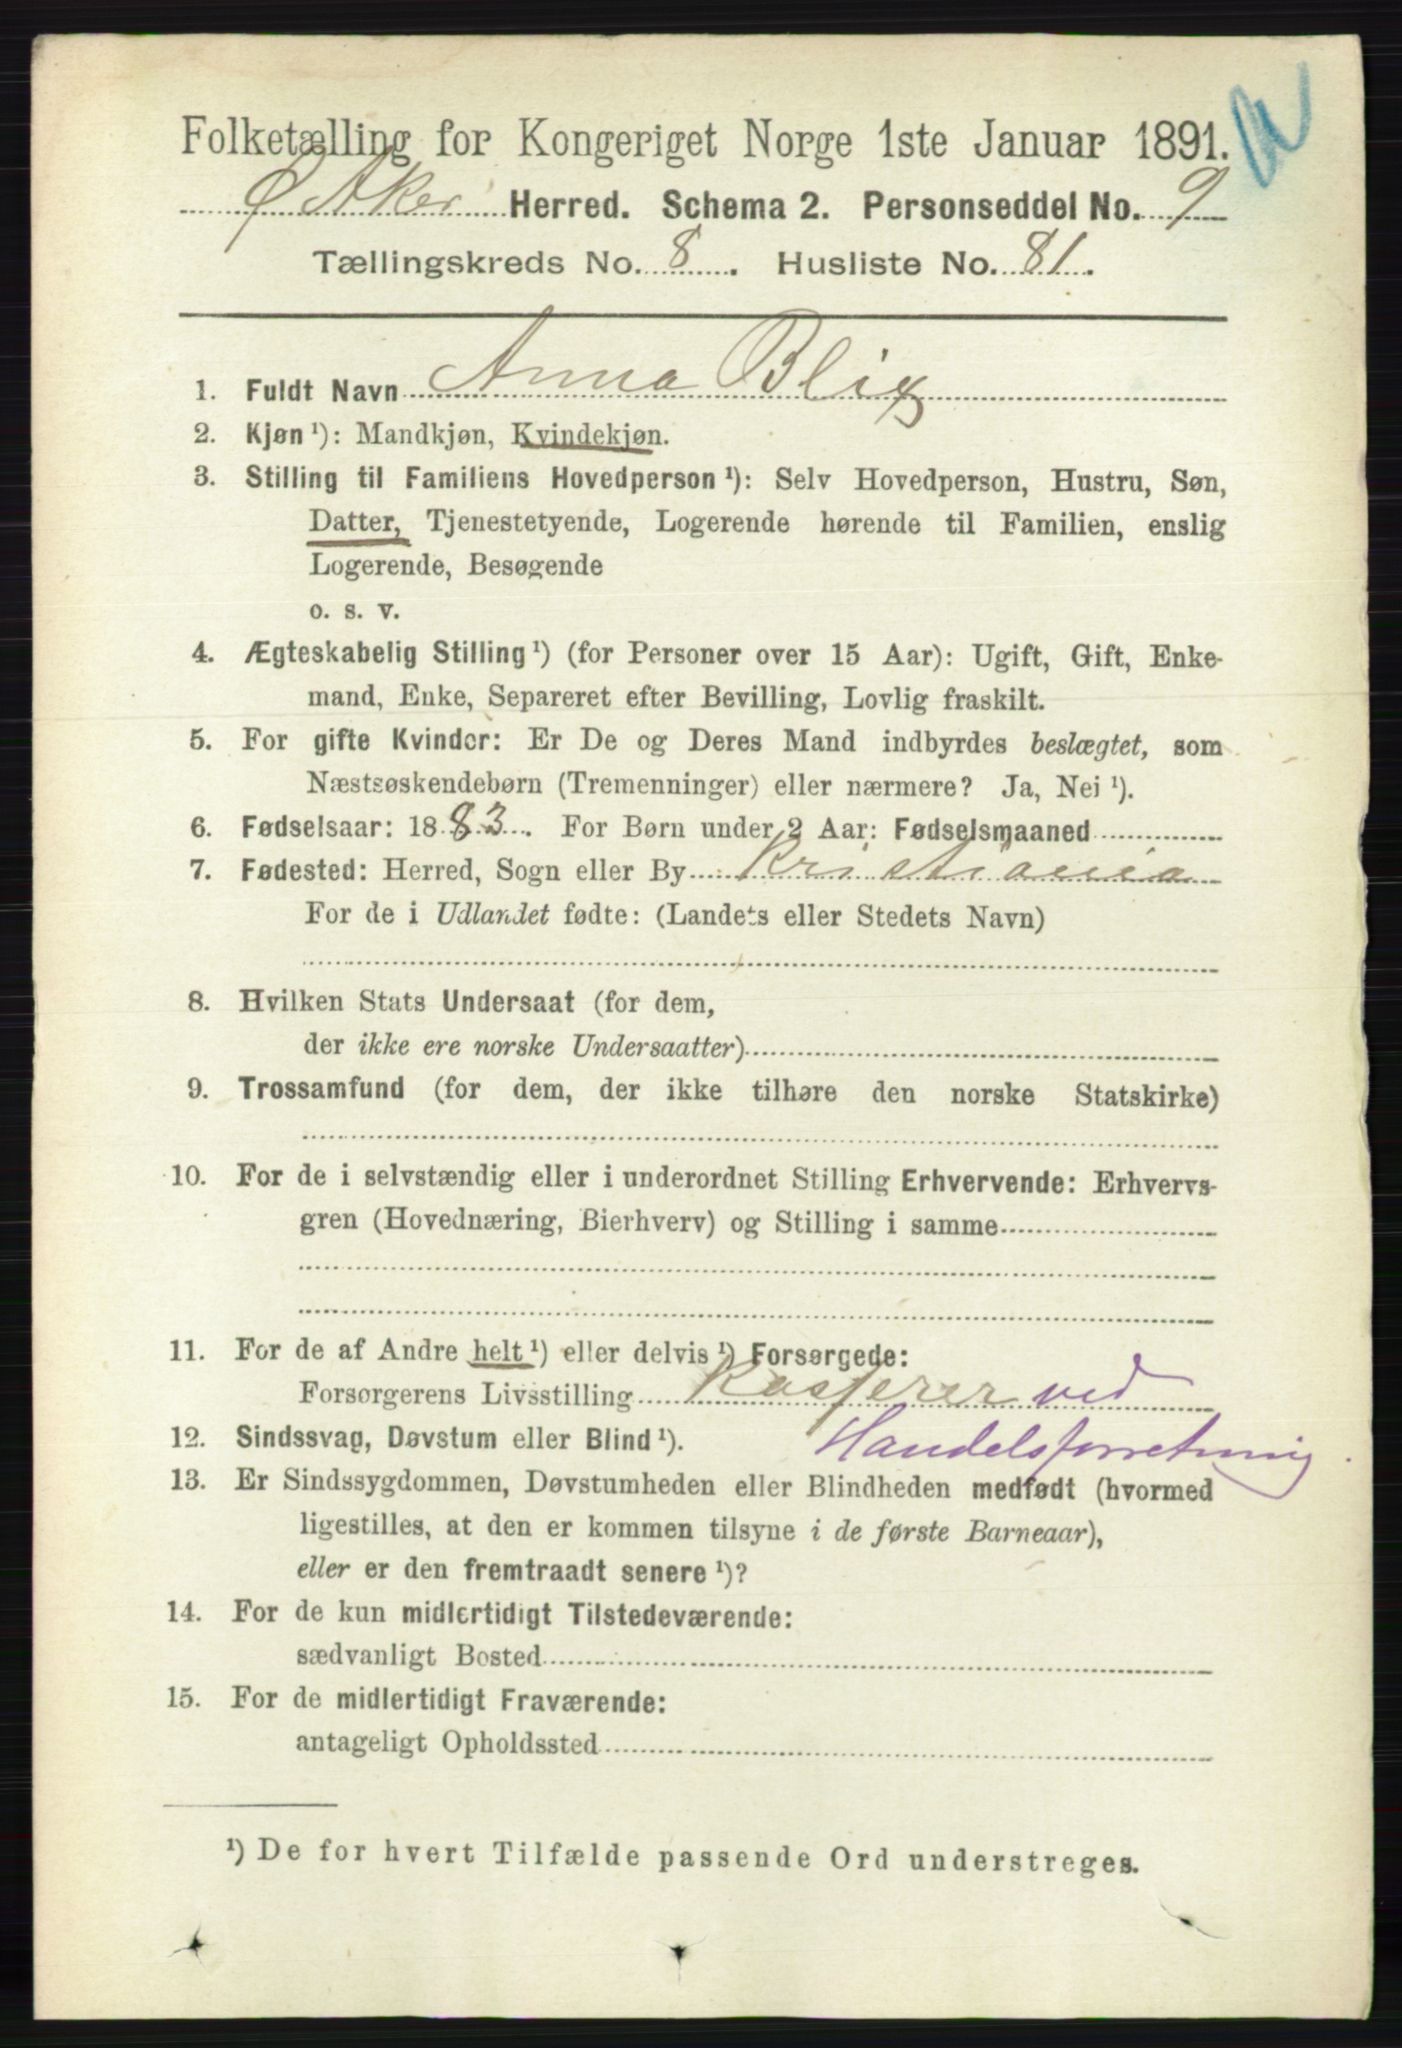 Folketælling for Kongeriget Norge 1ste Januar 1891.
Ø Aker Herred. Schema 2. Personseddel No. 9
Tællingskreds No. 8. Husliste No. 81.
1. Fuldt Navn Anna Blix
2. Kjøn ¹): Mandkjøn, Kvindekjøn.
3. Stilling til Familiens Hovedperson ¹): Selv Hovedperson, Hustru, Søn,
Datter, Tjenestetyende, Logerende hørende til Familien, enslig
Logerende, Besøgende
o. s. v.
4. Ægteskabelig Stilling ¹) (for Personer over 15 Aar): Ugift, Gift, Enke-
mand, Enke, Separeret efter Bevilling, Lovlig fraskilt.
5. For gifte Kvinder: Er De og Deres Mand indbyrdes beslægtet, som
Næstsøskendebørn (Tremenninger) eller nærmere? Ja, Nei ¹).
6. Fødselsaar: 1883. For Børn under 2 Aar: Fødselsmaaned
7. Fødested: Herred, Sogn eller By Kristiania
For de i Udlandet fødte: (Landets eller Stedets Navn)
8. Hvilken Stats Undersaat (for dem,
der ikke ere norske Undersaatter)
9. Trossamfund (for dem, der ikke tilhøre den norske Statskirke)
10. For de i selvstændig eller i underordnet Stilling Erhvervende: Erhvervs-
gren (Hovednæring, Bierhverv) og Stilling i samme
11. For de af Andre helt ¹) eller delvis ¹) Forsørgede:
Forsørgerens Livsstilling Kasserer ved
12. Sindssvag, Døvstum eller Blind ¹). Handelsforretning
13. Er Sindssygdommen, Døvstumheden eller Blindheden medfødt (hvormed
ligestilles, at den er kommen tilsyne i de første Barneaar),
eller er den fremtraadt senere ¹)?
14. For de kun midlertidigt Tilstedeværende:
sædvanligt Bosted
15. For de midlertidigt Fraværende:
antageligt Opholdssted
¹) De for hvert Tilfælde passende Ord understreges.